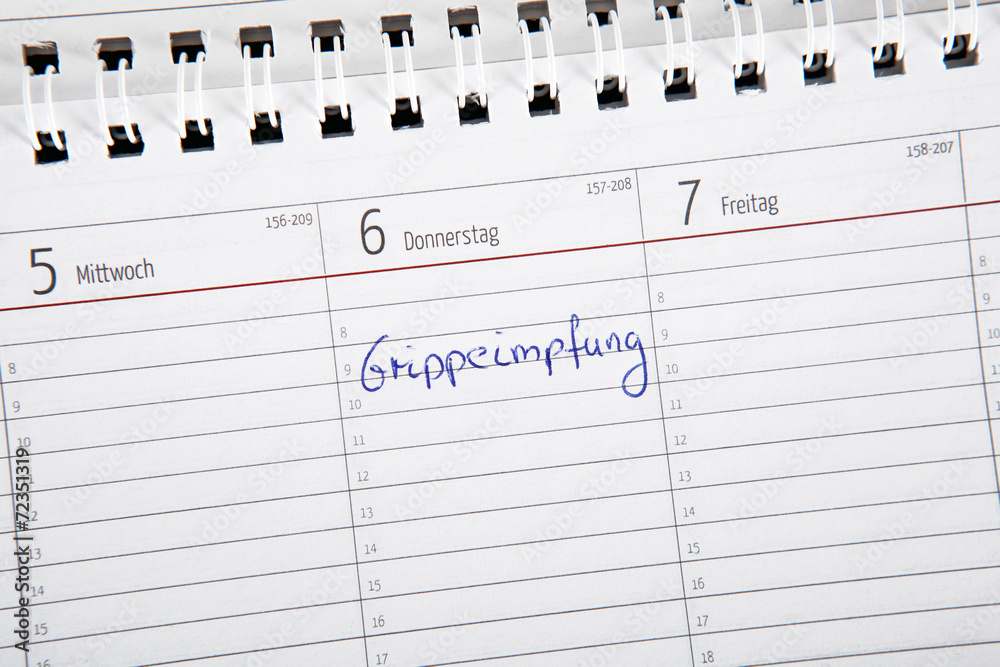 5 Mittwoch 156-209
6 Donnerstag 157-208
7 Freitag 158-207
Grippeimpfung
8
9
10
12
13
14
15
16
8
9
10
11
12
13
14
15
16
17
8
9
10
11
12
13
14
15
16
17
18
8
9
10
Adobe Stock | #72351319